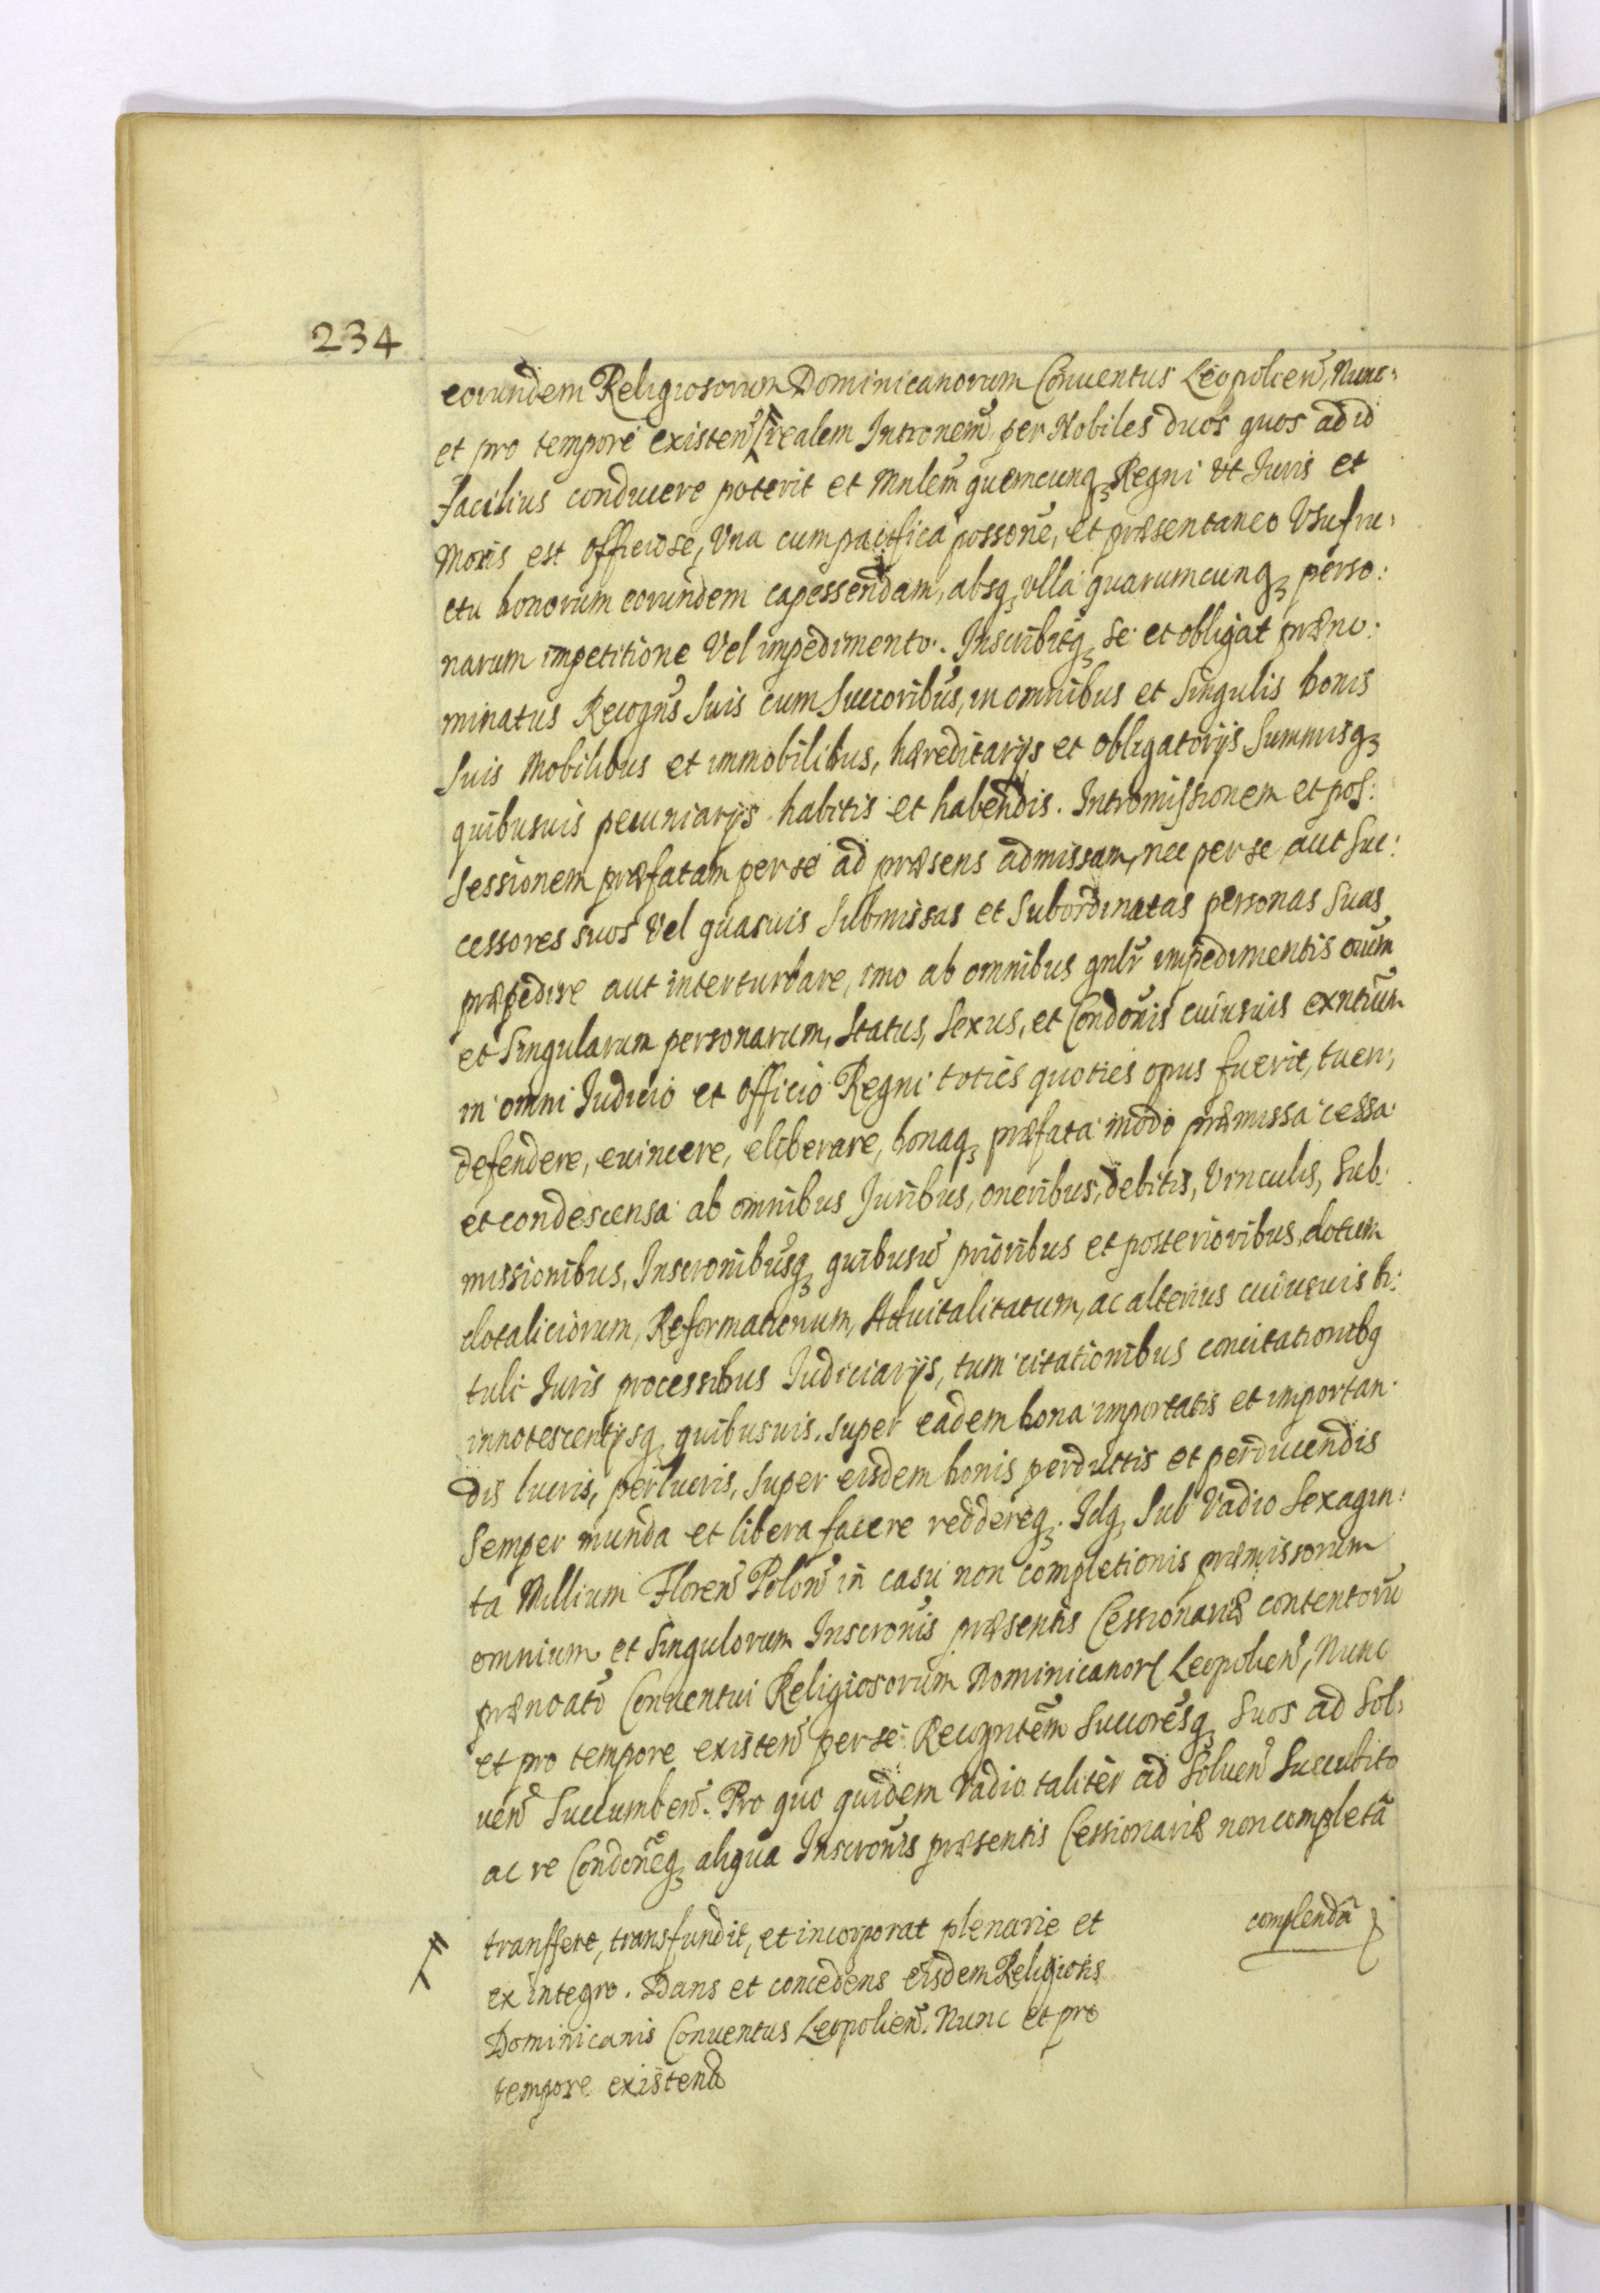 234
eorundem Religiosorum Dominicanorum Conuentus Leopolien̄, Nunc
et pro tempore existen̄ realem Intronem̄ per Nobiles duos quos ad id
facilius conducere poterit et Mnlem̄ quemcunq Regni ut Iuris et
Moris est officiose, Vna cum pacifica possone, et præsentaneo Vsufru:
ctu bonorum eorundem capessendam, absq ulla quarumcunq perso:
narum impetitione Vel impedimento. Inscribitq se et obligat præno:
minatus Recogn̄s suis cum succoribus, in omnibus et singulis bonis
suis Mobilibus et immobilibus, hæreditarijs et obligatorijs summisq
quibusuis pecuniarijs habitis et habendis. Intromissionem et pos:
sessionem præfatam per se ad præsens admissam, nec per se aut suc:
cessores suos Vel quasuis submissas et subordinatas personas suas
præpedire aut interturbare, imo ab omnibus gnlr̄ impedimentis oium̄
et singularum personarum, status, sexus, et Condōnis cuiusuis exn̄tium
in omni Iudicio et officio Regni toties quoties opus fuerit, tueri,
defendere, euincere, eliberare, bonaq præfata modo præmissa cessa
et condescensa ab omnibus Iuribus, oneribus, debitis, Vinculis, Sub:
missionibus, Inscronibusq quibusuis prioribus et posterioribus, dotium
dotaliciorum, Reformationum, Aduitalitatum, ac alterius cuiusuis ti:
tuli Iuris processibus Iudiciarijs, tum citationibus concitationibq
innotescentijsq quibusuis. super eadem bona importatis et importan
dis lucris, perlucris, super eisdem bonis perductis et perducendis
semper munda et libera facere reddereq. Idq sub Vadio Sexagin:
ta Millium Floren̄ Polon̄ in casu non completionis præmissorum
omnium et singulorum Inscronis præsentis Cessionariæ contentorū
prænoato Conuentui Religiosorum Dominicanor Leopolien̄, Nunc
et pro tempore existen̄ per se Recogntem̄ Succoresq suos ad sol:
uen̄ Succumben̄. Pro quo quidem Vadio taliter ad soluen̄ succubito
ac re Condoneq aliqua Inscronis præsentis Cessionariæ non completa
complenda
transfert, transfundit, et incorporat plenarie et
ex integro. Dans et concedens eisdem Religiosis
Dominicanis Conuentus Leopolien̄. Nunc et pro
tempore existen̄